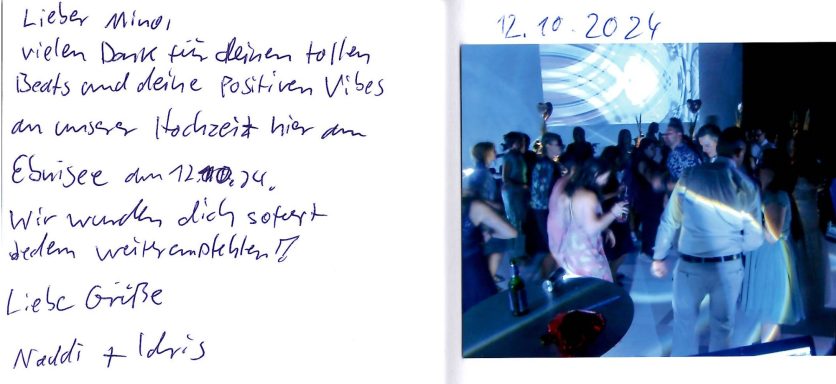 Lieber Mino,
vielen Dank für deinen tollen
Beats und deine Positiven Vibes
an unserer Hochzeit hier am
Ebnisee am 12.10.24.
Wir wurden dich sofort
jedem weiterempfehlen!!
Liebe Grüße
Naddi + Idris
12.10.2024